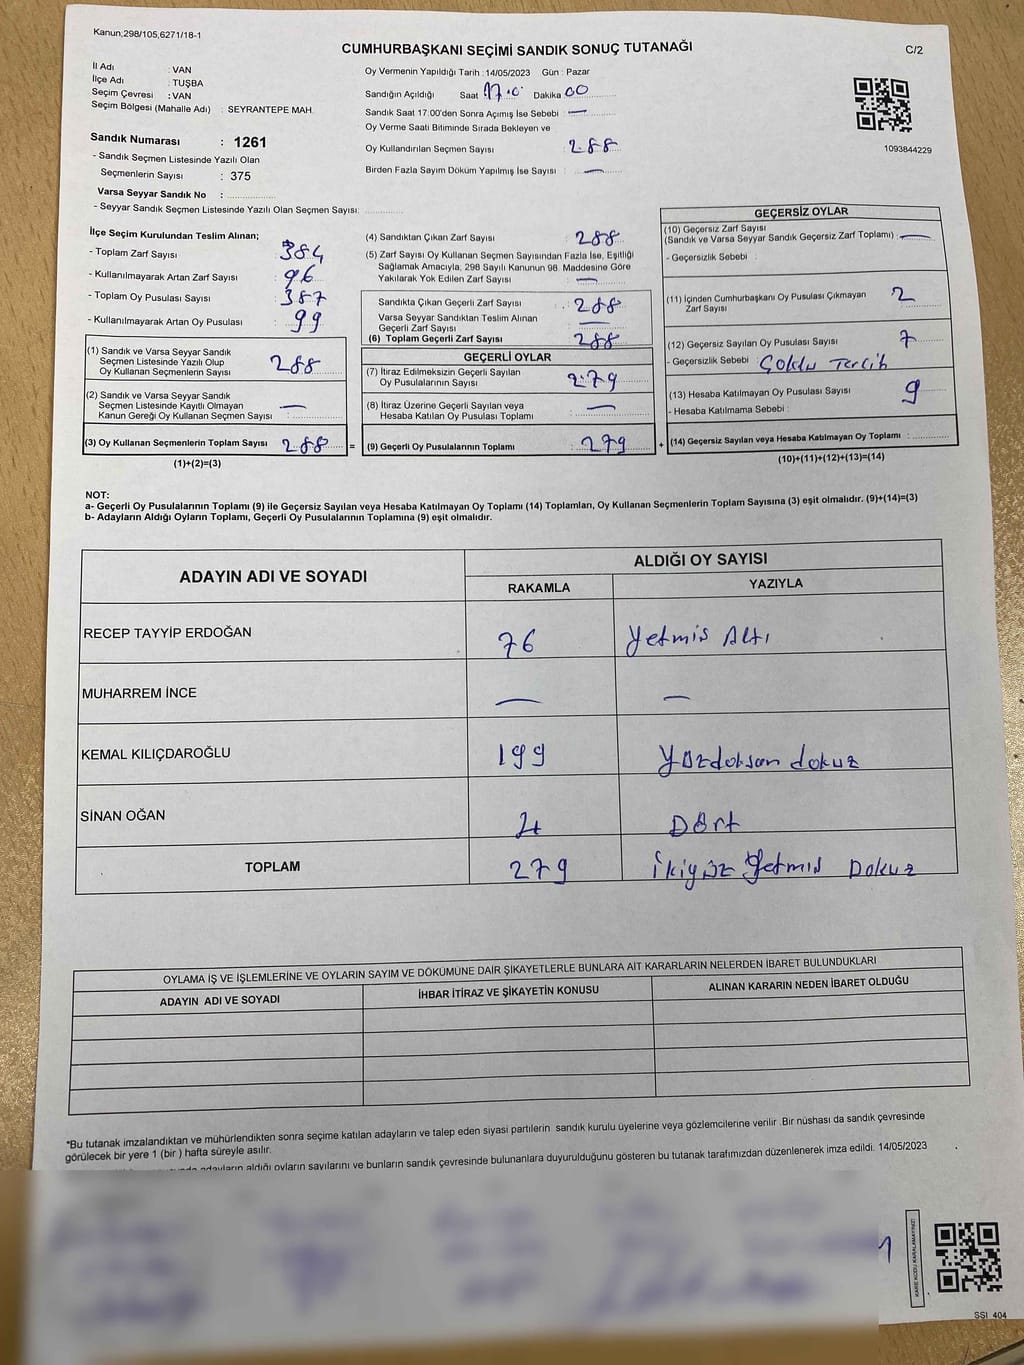 Kanun,298/105,6271/18-1
CUMHURBAŞKANI SEÇİMİ SANDIK SONUÇ TUTANAĞI
C/2
İl Adı : VAN
İlçe Adı : TUŞBA
Seçim Çevresi : VAN
Seçim Bölgesi (Mahalle Adı) : SEYRANTEPE MAH.
Sandık Numarası : 1261
- Sandık Seçmen Listesinde Yazılı Olan
Seçmenlerin Sayısı : 375
Varsa Seyyar Sandık No :
- Seyyar Sandık Seçmen Listesinde Yazılı Olan Seçmen Sayısı:
Oy Vermenin Yapıldığı Tarih : 14/05/2023 Gün : Pazar
Sandığın Açıldığı Saat 17.0 Dakika 00
Sandık Saat 17:00'den Sonra Açımış İse Sebebi : —
Oy Verme Saati Bitiminde Sırada Bekleyen ve
Oy Kullandırılan Seçmen Sayısı : 288
Birden Fazla Sayım Döküm Yapılmış İse Sayısı : —
1093844229
İlçe Seçim Kurulundan Teslim Alınan;
- Toplam Zarf Sayısı : 384
- Kullanılmayarak Artan Zarf Sayısı : 96
- Toplam Oy Pusulası Sayısı : 387
- Kullanılmayarak Artan Oy Pusulası : 99
(1) Sandık ve Varsa Seyyar Sandık
Seçmen Listesinde Yazılı Olup
Oy Kullanan Seçmenlerin Sayısı : 288
(2) Sandık ve Varsa Seyyar Sandık
Seçmen Listesinde Kayıtlı Olmayan
Kanun Gereği Oy Kullanan Seçmen Sayısı : —
(3) Oy Kullanan Seçmenlerin Toplam Sayısı : 288 =
(1)+(2)=(3)
(4) Sandıktan Çıkan Zarf Sayısı : 288
(5) Zarf Sayısı Oy Kullanan Seçmen Sayısından Fazla İse, Eşitliği
Sağlamak Amacıyla, 298 Sayılı Kanunun 98. Maddesine Göre
Yakılarak Yok Edilen Zarf Sayısı : —
Sandıkta Çıkan Geçerli Zarf Sayısı : 288
Varsa Seyyar Sandıktan Teslim Alınan
Geçerli Zarf Sayısı : —
(6) Toplam Geçerli Zarf Sayısı : 288
GEÇERLİ OYLAR
(7) İtiraz Edilmeksizin Geçerli Sayılan
Oy Pusulalarının Sayısı : 279
(8) İtiraz Üzerine Geçerli Sayılan veya
Hesaba Katılan Oy Pusulası Toplamı : —
(9) Geçerli Oy Pusulalarının Toplamı : 279 +
GEÇERSİZ OYLAR
(10) Geçersiz Zarf Sayısı
(Sandık ve Varsa Seyyar Sandık Geçersiz Zarf Toplamı) : —
- Geçersizlik Sebebi :
(11) İçinden Cumhurbaşkanı Oy Pusulası Çıkmayan
Zarf Sayısı : 2
(12) Geçersiz Sayılan Oy Pusulası Sayısı : 7
- Geçersizlik Sebebi : Çoklu Tercih
(13) Hesaba Katılmayan Oy Pusulası Sayısı : 9
- Hesaba Katılmama Sebebi :
(14) Geçersiz Sayılan veya Hesaba Katılmayan Oy Toplamı :
(10)+(11)+(12)+(13)=(14)
NOT:
a- Geçerli Oy Pusulalarının Toplamı (9) ile Geçersiz Sayılan veya Hesaba Katılmayan Oy Toplamı (14) Toplamları, Oy Kullanan Seçmenlerin Toplam Sayısına (3) eşit olmalıdır. (9)+(14)=(3)
b- Adayların Aldığı Oyların Toplamı, Geçerli Oy Pusulalarının Toplamına (9) eşit olmalıdır.
ADAYIN ADI VE SOYADI
ALDIĞI OY SAYISI
RAKAMLA YAZIYLA
RECEP TAYYİP ERDOĞAN 76 Yetmis Altı
MUHARREM İNCE — —
KEMAL KILIÇDAROĞLU 199 Yüzdoksan dokuz
SİNAN OĞAN 4 Dört
TOPLAM 279 İkiyüz Yetmis Dokuz
OYLAMA İŞ VE İŞLEMLERİNE VE OYLARIN SAYIM VE DÖKÜMÜNE DAİR ŞİKAYETLERLE BUNLARA AİT KARARLARIN NELERDEN İBARET BULUNDUKLARI
ADAYIN ADI VE SOYADI
İHBAR İTİRAZ VE ŞİKAYETİN KONUSU
ALINAN KARARIN NEDEN İBARET OLDUĞU
*Bu tutanak imzalandıktan ve mühürlendikten sonra seçime katılan adayların ve talep eden siyasi partilerin sandık kurulu üyelerine veya gözlemcilerine verilir .Bir nüshası da sandık çevresinde
görülecek bir yere 1 (bir ) hafta süreyle asılır.
adayların aldığı oyların sayılarını ve bunların sandık çevresinde bulunanlara duyurulduğunu gösteren bu tutanak tarafımızdan düzenlenerek imza edildi. 14/05/2023
KARE KODU KARALAMAYINIZ!
SSI 404